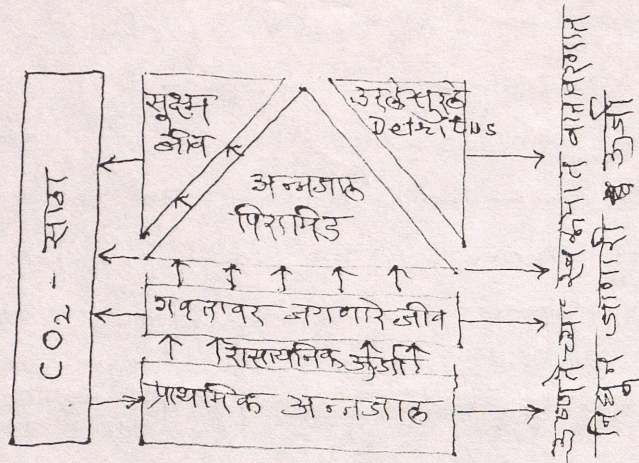 CO₂ - साठा
सूक्ष्म
जीव
उरलेसुरले
Detritus
अन्नजाल
पिरामिड
गवतावर जगणारे जीव
रासायनिक ऊर्जा
प्राथमिक अन्नजाल
उष्णतेच्या स्वरूपात वातावरणात
निघून जाणारी ऊर्जा